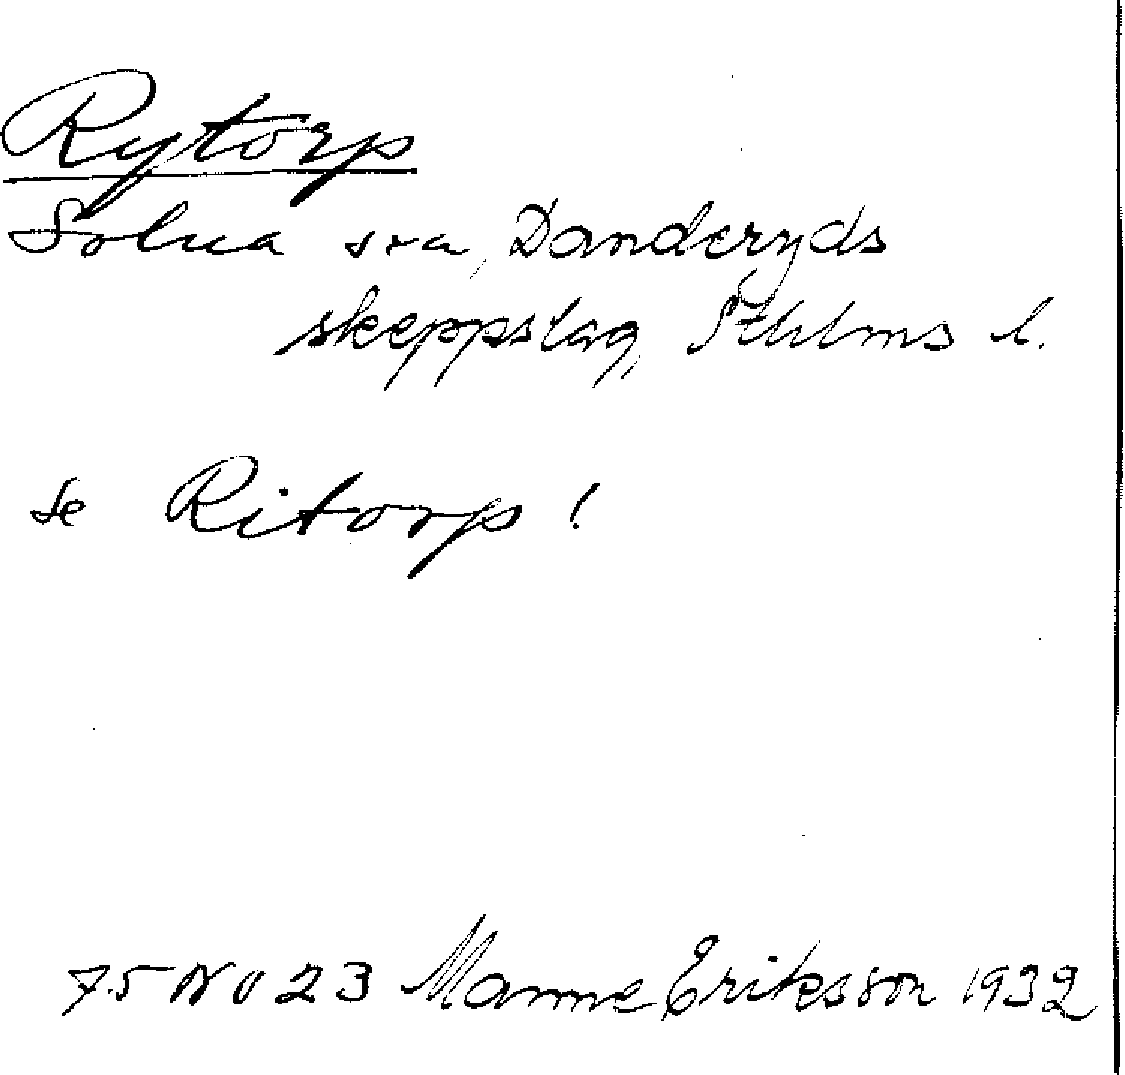 Rytorp
Solna sn, Danderyds
skeppslag, Sthlms l.
se Ritorp!
75 NV 23 Manne Eriksson 1932